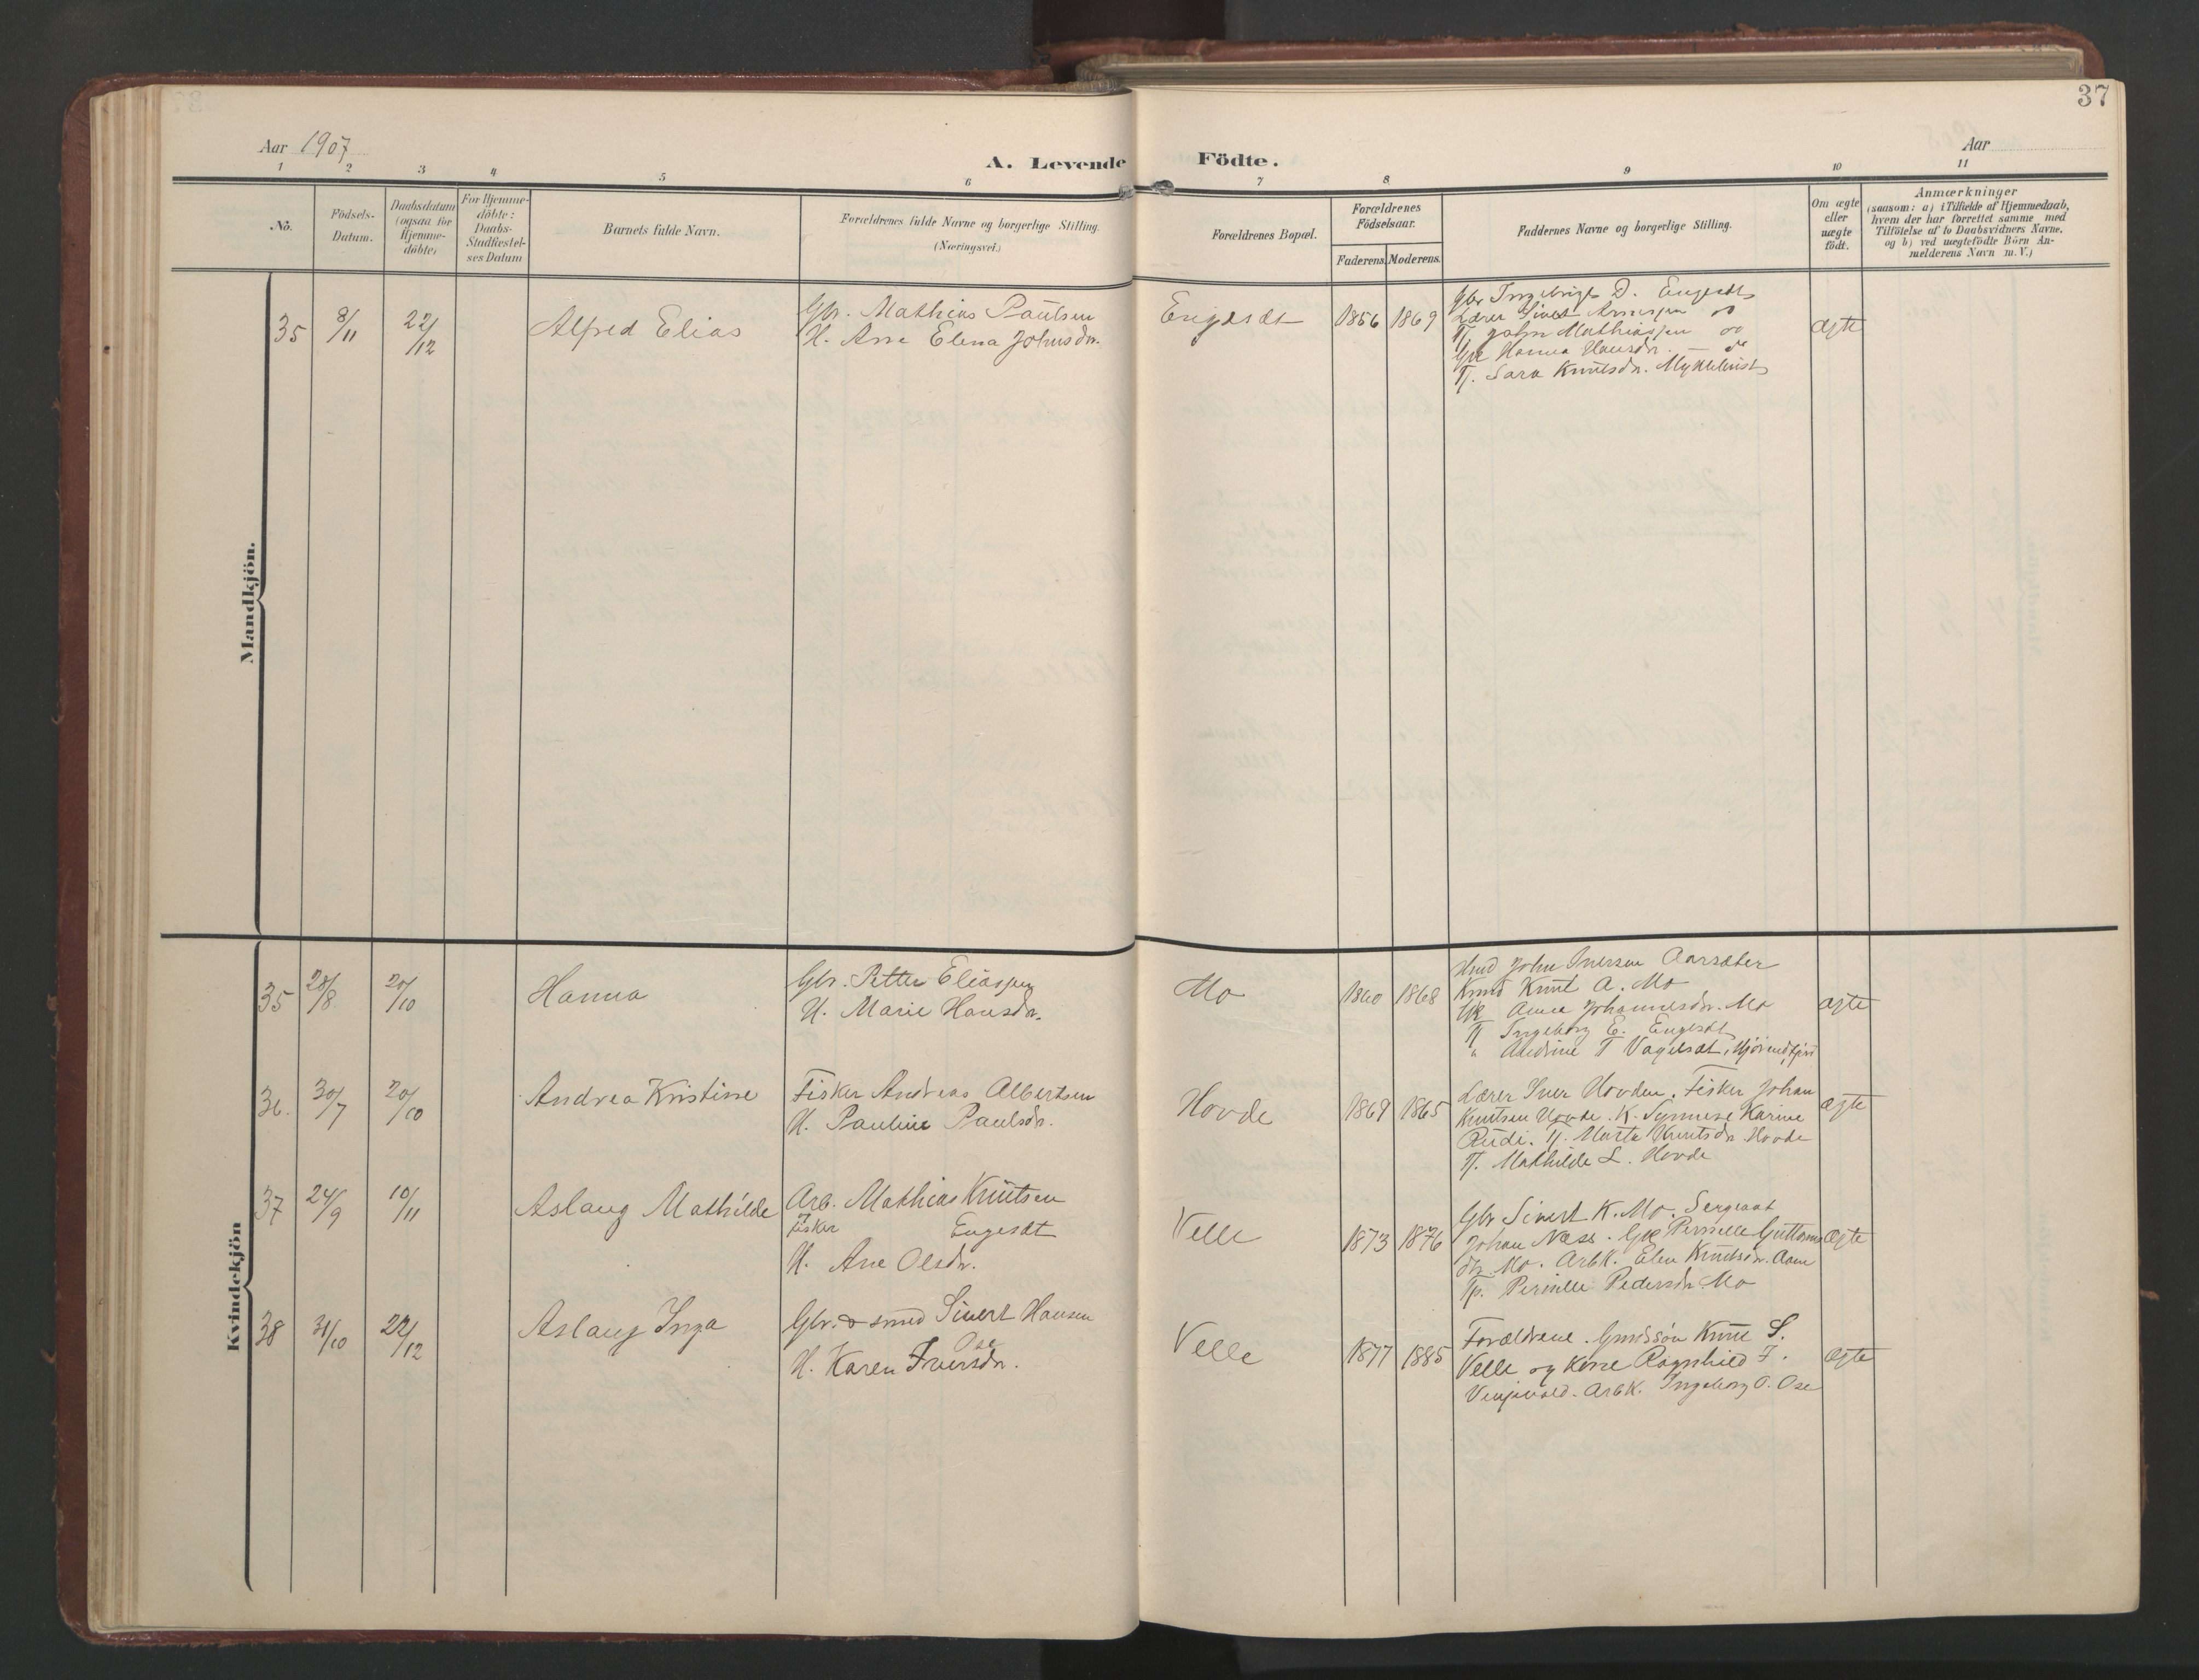 37
Aar 1907
A. Levende Födte.
Aar
1 2 3 4 5 6 7 8 9 10 11
No.
Födsels-
Datum.
Daabsdatum
(ogsaa for
Hjemme-
döbte)
For Hjemme-
döbte:
Daabs-
Stadfæstel-
ses Datum
Barnets fulde Navn.
Forældrenes fulde Navne og borgerlige Stilling.
(Næringsvei.)
Forældrenes Bopæl.
Forældrenes
Födselsaar.
Faderens. Moderens.
Faddernes Navne og borgerlige Stilling.
Om ægte
eller
uægte
födt.
Anmærkninger
(saasom: a) i Tilfælde af Hjemmedaab,
hvem der har forrettet samme med
Tilföielse af to Daabsvidners Navne,
og b) ved uægtefödte Börn An-
melderens Navn m. V.)
Mandkjön.
35 8/11 22/12
Alfred Elias
Gbr. Mathias Paulsen
H. Ane Elena Johnsdr.
Engesæt
1856 1869
Gbr Ingebrigt D. Engesæt
Lærer Sivert Arnessen do
Tj. John Mathiassen do
Gk Hanna Hansdr. — do
Tj. Sara Knutsdr. Myklebust
ægte
Kvindekjön
35 28/8 20/10
Hanna
Gbr. Petter Eliassen
H. Marie Hansdr.
Mo
1860 1868
Ungd John Iversen Aarsæter
Knut A. Mo
Gk Anne Johannesdr. Mo
Tj Ingeborg E. Engesæt
" T Vagesæt, Hjörendfjord
ægte
36. 30/7 20/10
Andrea Kristine
Fisker Andreas Albertsen
H. Pauline Paulsdr.
Hovde
1869 1865
Lærer Iver Hovden. Fisker Johan
Knutsen Hovde. K. Synneve Karine
Rudi. Tj. Marta Knutsdr Hovde
Tj. Mathilde L. Hovde
ægte
37 24/9 10/11
Aslaug Mathilde
Arb. Mathias Knutsen
Fisker Engesæt
H. Ane Olsdr.
Velle
1873 1876
Gbr Sivert K. Mo. Sergeant
Johan Næss. Gk Pernille Guttorms
dr. Mo. Arbk. Elen Knutsdr. Aam
Tp. Pernille Pedersdr. Mo
ægte
38 31/10 22/12
Aslaug Inga
Gbr. & smed Sivert Hansen
Ose
H. Karen Iversdr.
Velle
1877 1885
Forældrene. Gmdssøn Knut S.
Velle og Kone Ragnhild I.
Arbk. Ingeborg O. Ose
ægte